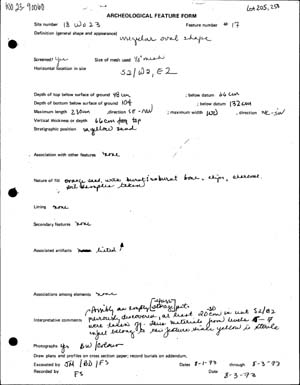 KO 23-91060
Lot 205, 257
ARCHEOLOGICAL FEATURE FORM
Site number 18 Wo 23 Feature number # 17
Definition (general shape and appearance)
irregular oval shape
Screened? Yes Size of mesh used 1/2" mesh
Horizontal location in site
S2/W2, E2
Depth of top below surface 48 cm ; below datum 66 cm
Depth of bottom below surface 104 ; below datum 132 cm
Maximum length 230 cm ; direction SE-NW ; maximum width ; direction NE-SW
Vertical thickness or depth 66 cm
Stratigraphic position in yellow sand
Association with other features none
Nature of fill orange sand with burnt/unburnt bone, chips, charcoal.
soil samples taken
Lining none
Secondary features none
Associated artifacts listed
Associations among elements none
Possibly an empty storage pit.
Interpretative comments discovered, at least 20 cm in unit S2/W2
were taken off. Thus materials from levels 5-7
might belong to this feature since yellow is sterile
Photographs Yes BW/Color
Draw plans and profiles on cross section paper; record burials on addendum.
Excavated by JH / BD / FS Dates 8-1-73 through 8-3-73
Recorded by FS Date 8-3-73